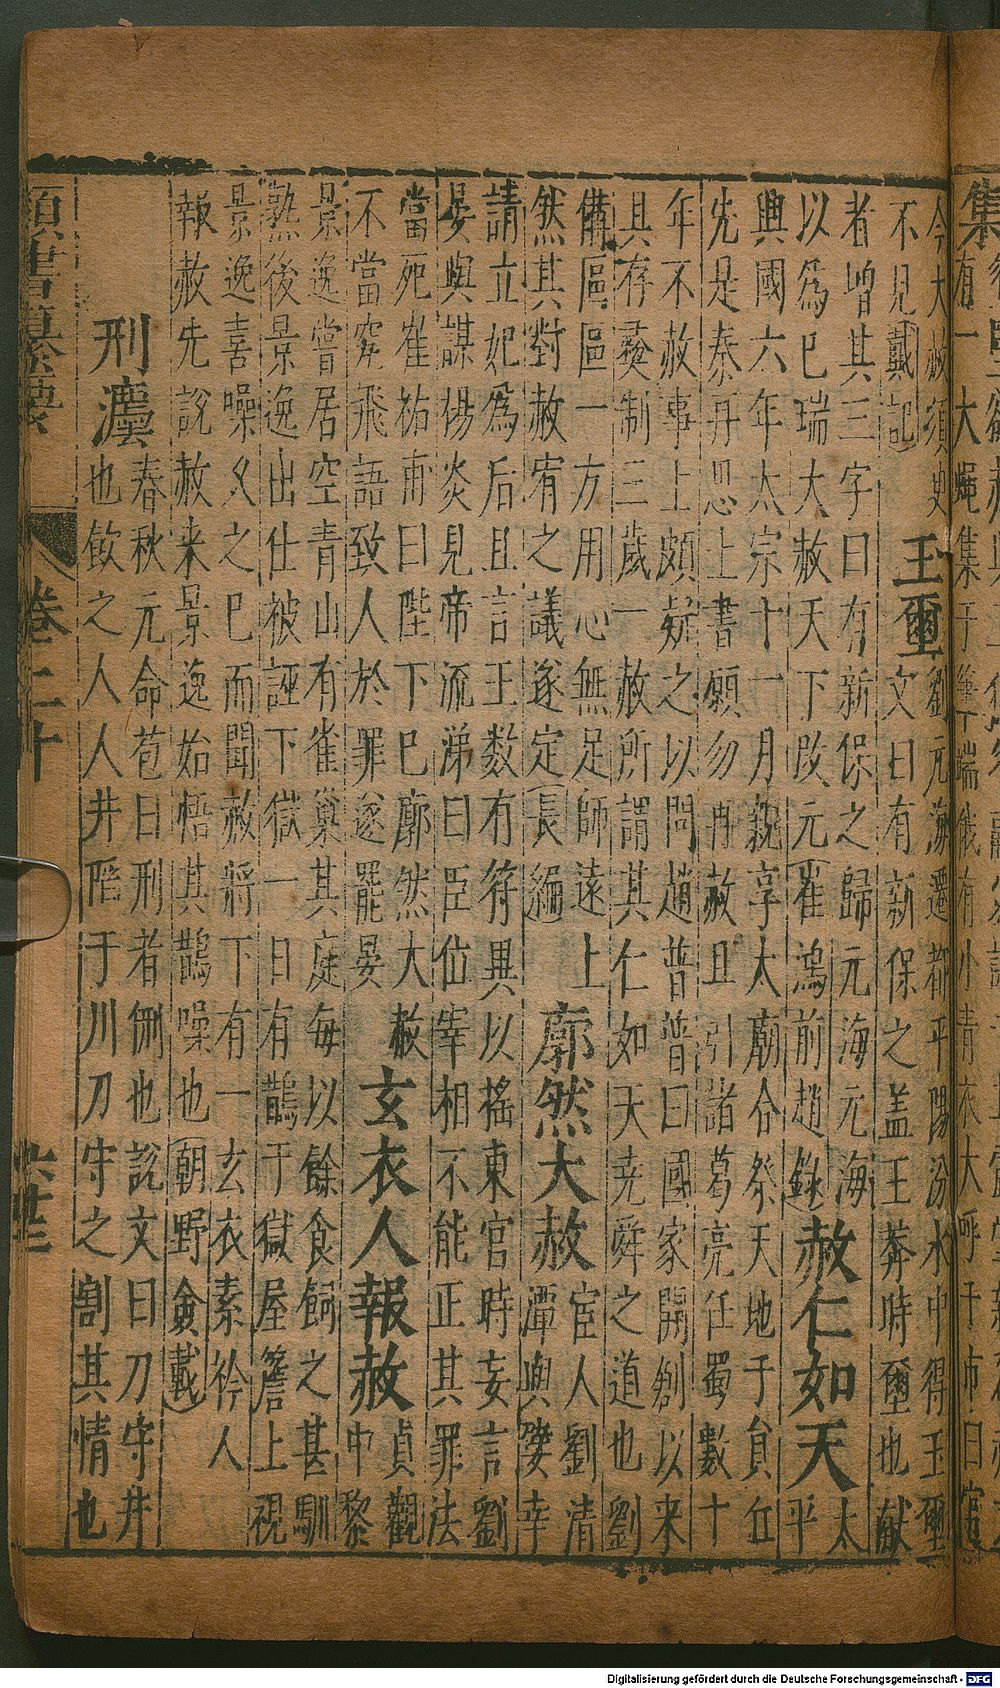 今大赦須臾
不見(戴記)
王璽
劉元海遷都平陽汾水中得玉璽
文曰有新保之盖王莽時璽也献
者增其三字曰有新保之歸元海元海
以爲巳瑞大赦天下改元(崔鴻前趙錄)
赦仁如天
太
平
興國六年太宗十一月親享太廟合祭天地于貟丘
先是秦再恩上書願勿再赦且引諸葛亮任蜀數十
年不赦事上頗疑之以問趙普普曰國家開創以来
其存彞制三歲一赦所謂其仁如天尭舜之道也劉
備區區一方用心無足師遠上
然其對赦宥之議遂定(長編)
廓然大赦
宦人劉清
潭與嬖幸
請立妃爲后且言王数有符異以摇東宫時妄言劉
晏與謀楊炎見帝流涕曰臣位宰相不能正其罪法
當死崔祐甫曰陛下巳廓然大赦
不當究飛語致人於罪遂罷晏
玄衣人報赦
貞觀
中黎
景逸嘗居空青山有雀巢其庭每以餘食飼之甚馴
熟後景逸出仕被誣下獄一日有鵲于獄屋簷上視
景逸喜噪久之巳而聞赦將下有一玄衣素衿人
報赦先說赦来景逸始悟其鵲噪也(朝野僉載)
刑灋
春秋元命苞曰刑者侀也說文曰刀守井
也飲之人人井陷于川刀守之割其情也
類書纂要
卷二十
Digitalisierung gefördert durch die Deutsche Forschungsgemeinschaft - DFG